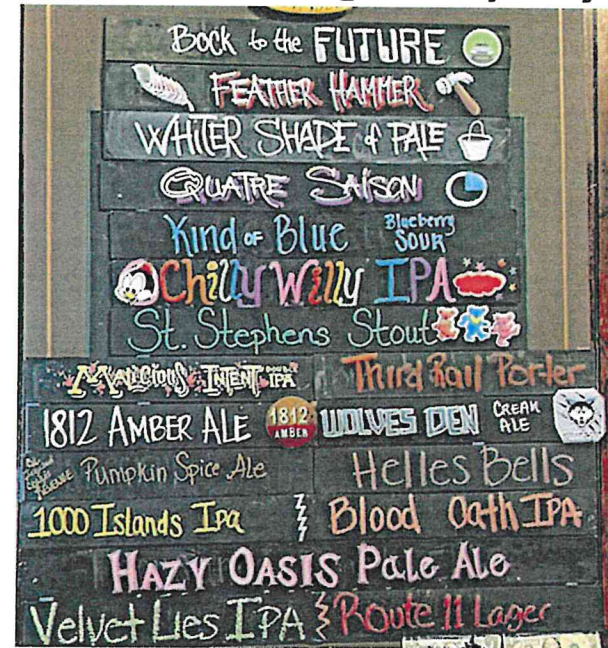 Bock to the FUTURE
FEATHER HAMMER
WHITER SHADE of PALE
QUATRE SAISON
Kind OF Blue Blueberry SOUR
Chilly Willy IPA
St. Stephens Stout
MALICIOUS INTENT DOUBLE IPA
Third Rail Porter
1812 AMBER ALE 1812 AMBER
WOLVES DEN CREAM ALE
REVENGE Pumpkin Spice Ale
Helles Bells
1000 Islands Ipa
Blood Oath IPA
HAZY OASIS Pale Ale
Velvet Lies IPA
Route 11 Lager